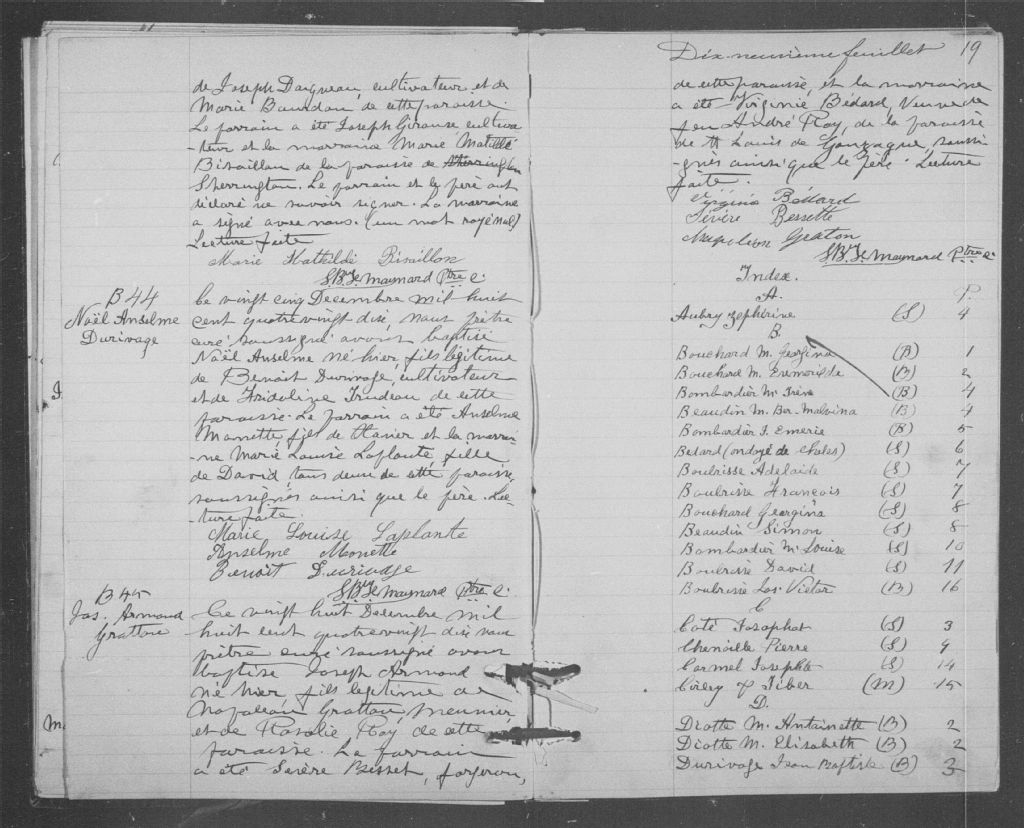 de Joseph Daigneau, cultivateur et de
Marie Baudau de cette paroisse.
Le parrain a été Joseph Girouse, cultiva
-teur et la marraine Marie Matilde
Bisaillon de la paroisse de Sherrington
Sherrington. Le parrain et le père ont
déclaré ne savoir signer. La marraine
a signé avec nous. (un mot rayé nul)
Lecture faite
Marie Mathilde Bisaillon
J.Bte. Maynard Ptre C.
B 44
Noël Anselme
Durivage
Ce vingt cinq Decembre mil huit
cent quatrevingt dix, nous prêtre
curé soussigné avons baptisé
Noël Anselme né hier, fils légitime
de Benoit Durivage, cultivateur
et de Fridoline Trudeau de cette
paroisse. Le parrain a été Anselme
Monette, fils de Xavier et la marrai
-ne Marie Louise Laplante fille
de David tous deux de cette paroisse,
soussignés ainsi que le père. Lec
-ture faite.
Marie Louise Laplante
Anselme Monette
Benoit Durivage
J.Bte. Maynard Ptre C.
B 45
Jos. Armand
Gratton
Ce vingt huit Decembre mil
huit cent quatrevingt dix nous
prêtre curé soussigné avons
baptisé Joseph Armand
né hier fils legitime de
Napoleon Gratton, meunier,
et de Rosalie Roy de cette
paroisse. Le parrain
a été Sévère Bisset, forgeron,
Dix neuvième feuillet 19
de cette paroisse, et la marraine
a été Virginie Bédard, Veuve de
feu André Roy, de la paroisse
de St Louis de Gonzague, soussi
-gnés ainsi que le père. Lecture
faite.
Virginie Bédard
Sévère Bessette
Napoléon Graton
J.Bte. Maynard Ptre C.
Index.
A. P.
Aubry zephirine (S) 4
B.
Bouchard M. Georgina (B) 1
Bouchard M. (B) 2
Bombardier M. Irène (B) 4
Beaudin M. Ber-Malvina (B) 4
Bombardier J. Emerie (B) 5
Bedard (ondoyé de Chales) (S) 6
Boulrisse Adelaide (S) 7
Boulrisse Francois (S) 7
Bouchard Georgina (S) 8
Beaudin Simon (S) 8
Bombardier M. Louise (S) 10
Boulrisse David (S) 11
Boulrisse Jos. Victor (B) 16
C
Coté Josaphat (S) 3
Chenaille Pierre (S) 9
Carmel Josephte (S) 14
Tiber (M) 15
D.
Diotte M. Antoinette (B) 2
Diotte M. Elisabeth (B) 2
Durivage Jean Baptiste (B) 3
J.
M.